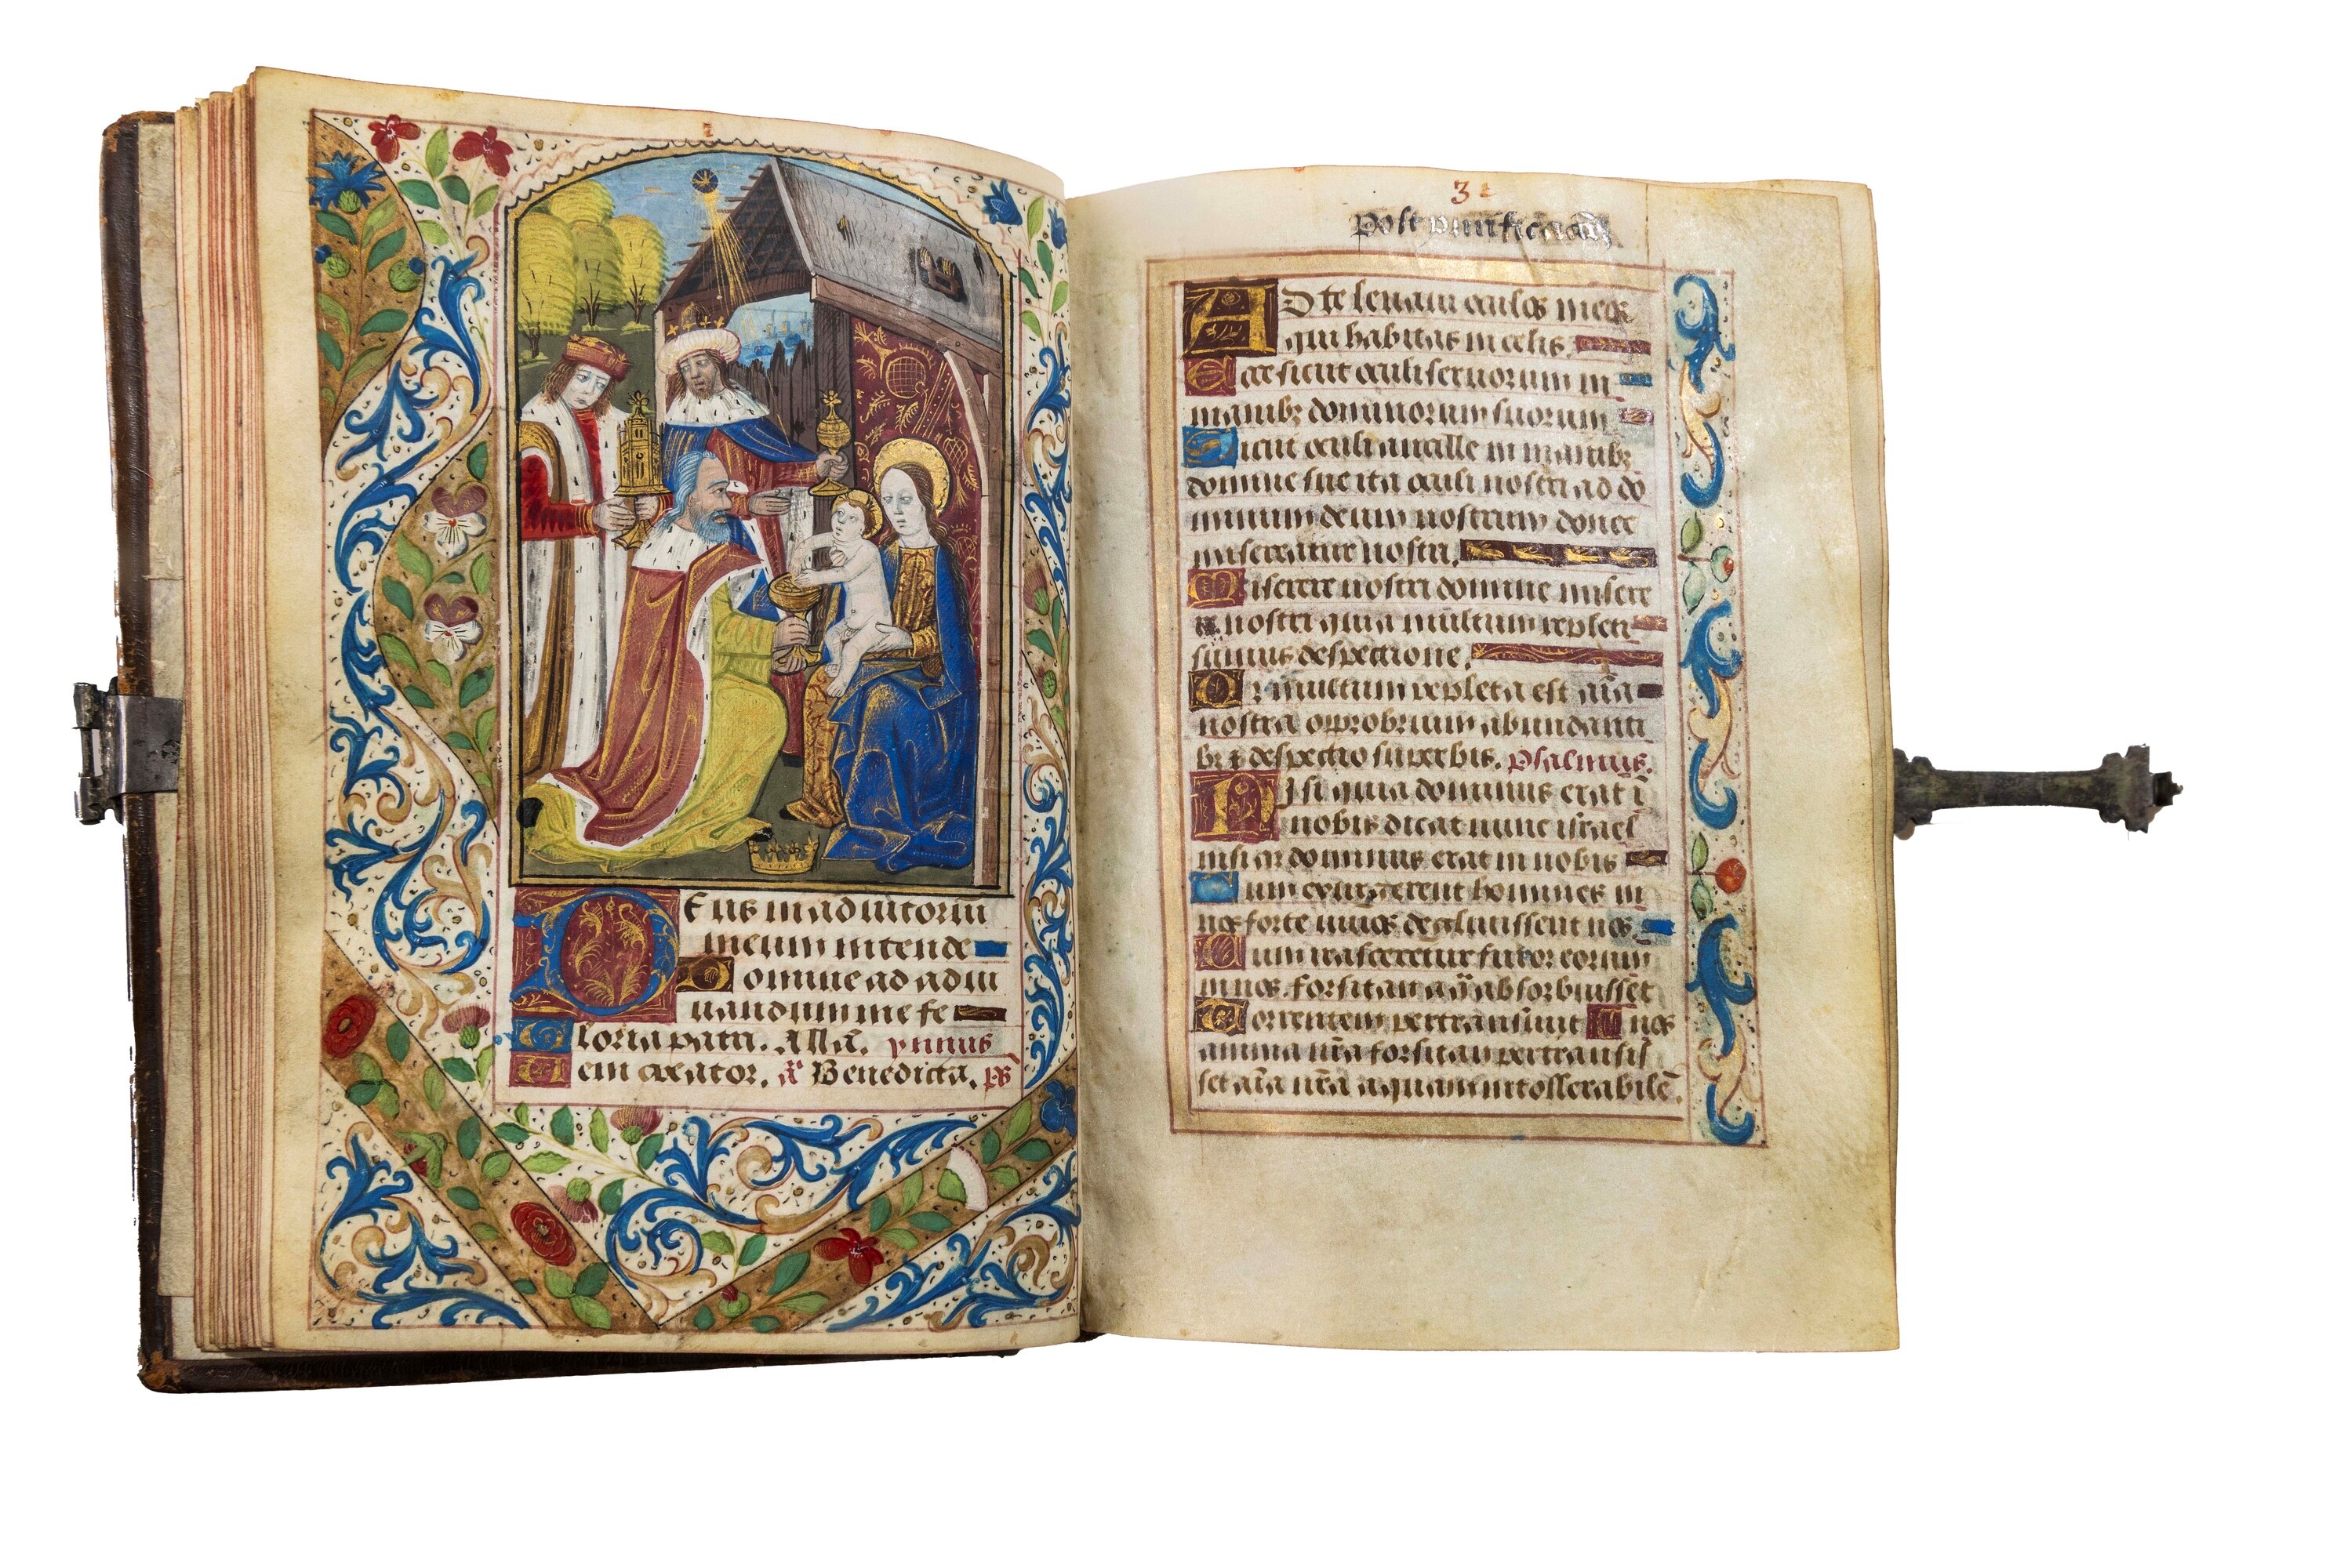 Eus in adiutoriũ
meum intende
Domine ad adiu
uandum me fe
Gloria patri. Allã. ymnus
Mem creator. añ Benedicta. ps̃
31
Post purificacioẽ
AD te leuaui oculos meos
qui habitas in celis.
Ecce sicut oculi seruorum in
manibꝫ dominorum suorum
Sicut oculi ancille in manibꝫ
domine sue ita oculi nostri ad do
minum deum nostrum donec
misereatur nostri.
Miserere nostri domine misere
re nostri quia multum repleti
sumus despectione.
Quia multum repleta est aĩa
nostra opprobrium abundanti
bꝫ ⁊ despectio superbis. Psalmus.
NIsi quia dominus erat ĩ
nobis dicat nunc israel
nisi qr dominus erat in nobis
Cum exurgerent homines in
nos forte uiuos deglutissent nos.
Cum irasceretur furor eorum
in nos. forsitan aq̃ absorbuisset
Torrentem pertransiuit nos
anima nr̃a forsitan pertransis
set aĩa nr̃a aquam intollerabilẽ.